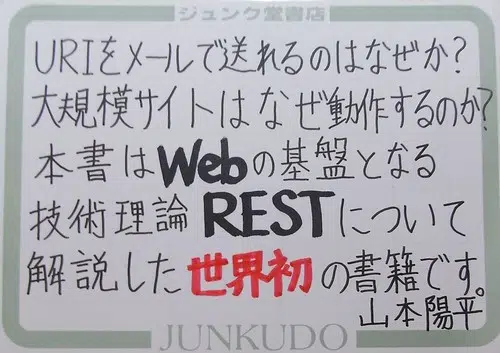 ジュンク堂書店
URIをメールで送れるのはなぜか?
大規模サイトはなぜ動作するのか?
本書はWebの基盤となる
技術理論RESTについて
解説した世界初の書籍です。
山本陽平
JUNKUDO